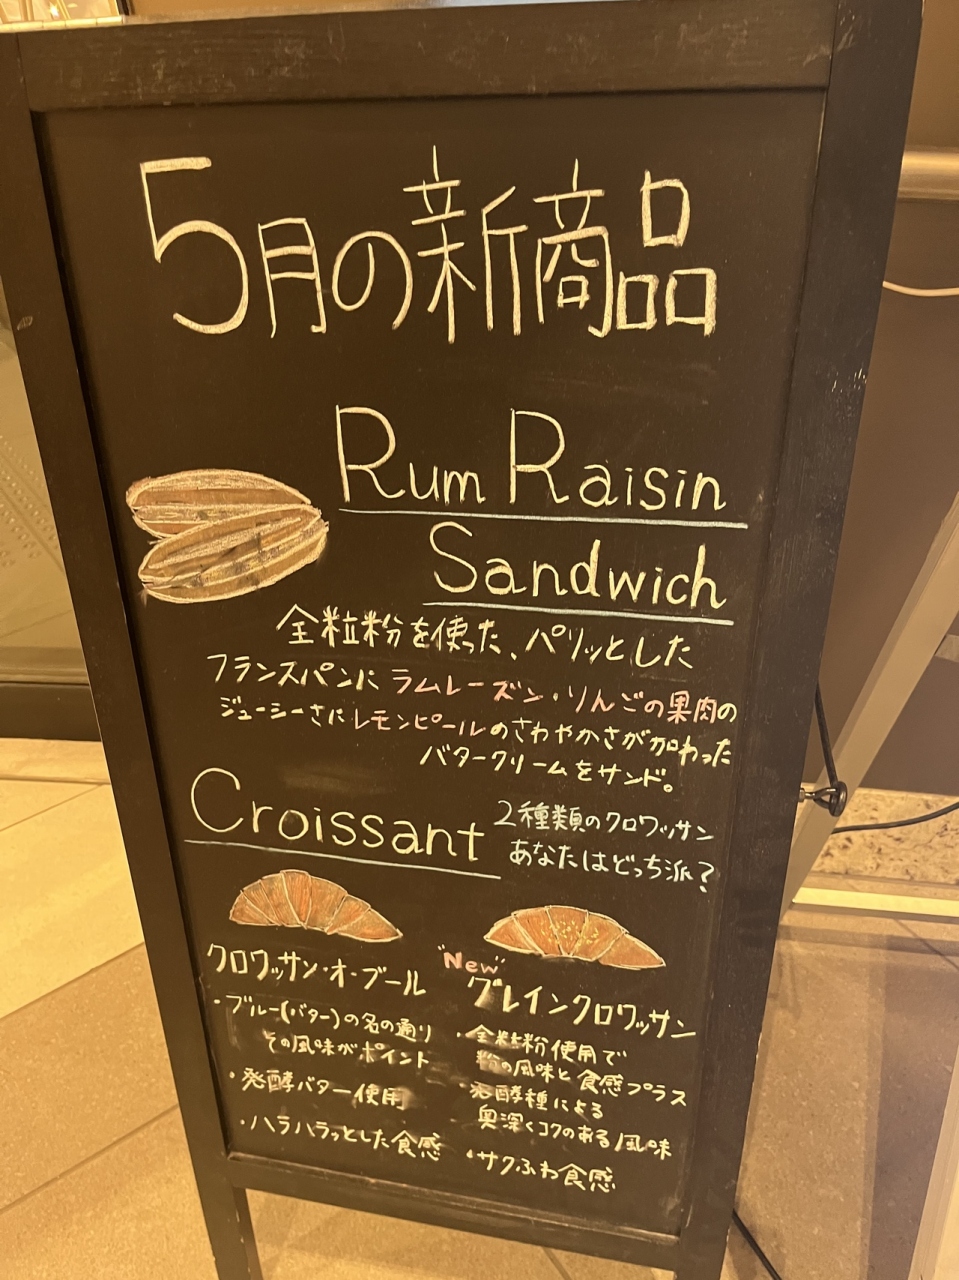 5月の新商品
Rum Raisin
Sandwich
全粒粉を使った、パリッとした
フランスパンに ラムレーズン・りんごの果肉の
ジューシーさに レモンピールのさわやかさが加わった
バタークリームをサンド。
Croissant
2種類のクロワッサン
あなたはどっち派?
クロワッサン・オ・ブール
・ブルー(バター)の名の通り
その風味がポイント
・発酵バター使用
・ハラハラっとした食感
"New"
グレインクロワッサン
・全粒粉使用で
粉の風味と食感プラス
・発酵種による
奥深くコクのある風味
・サクふわ食感